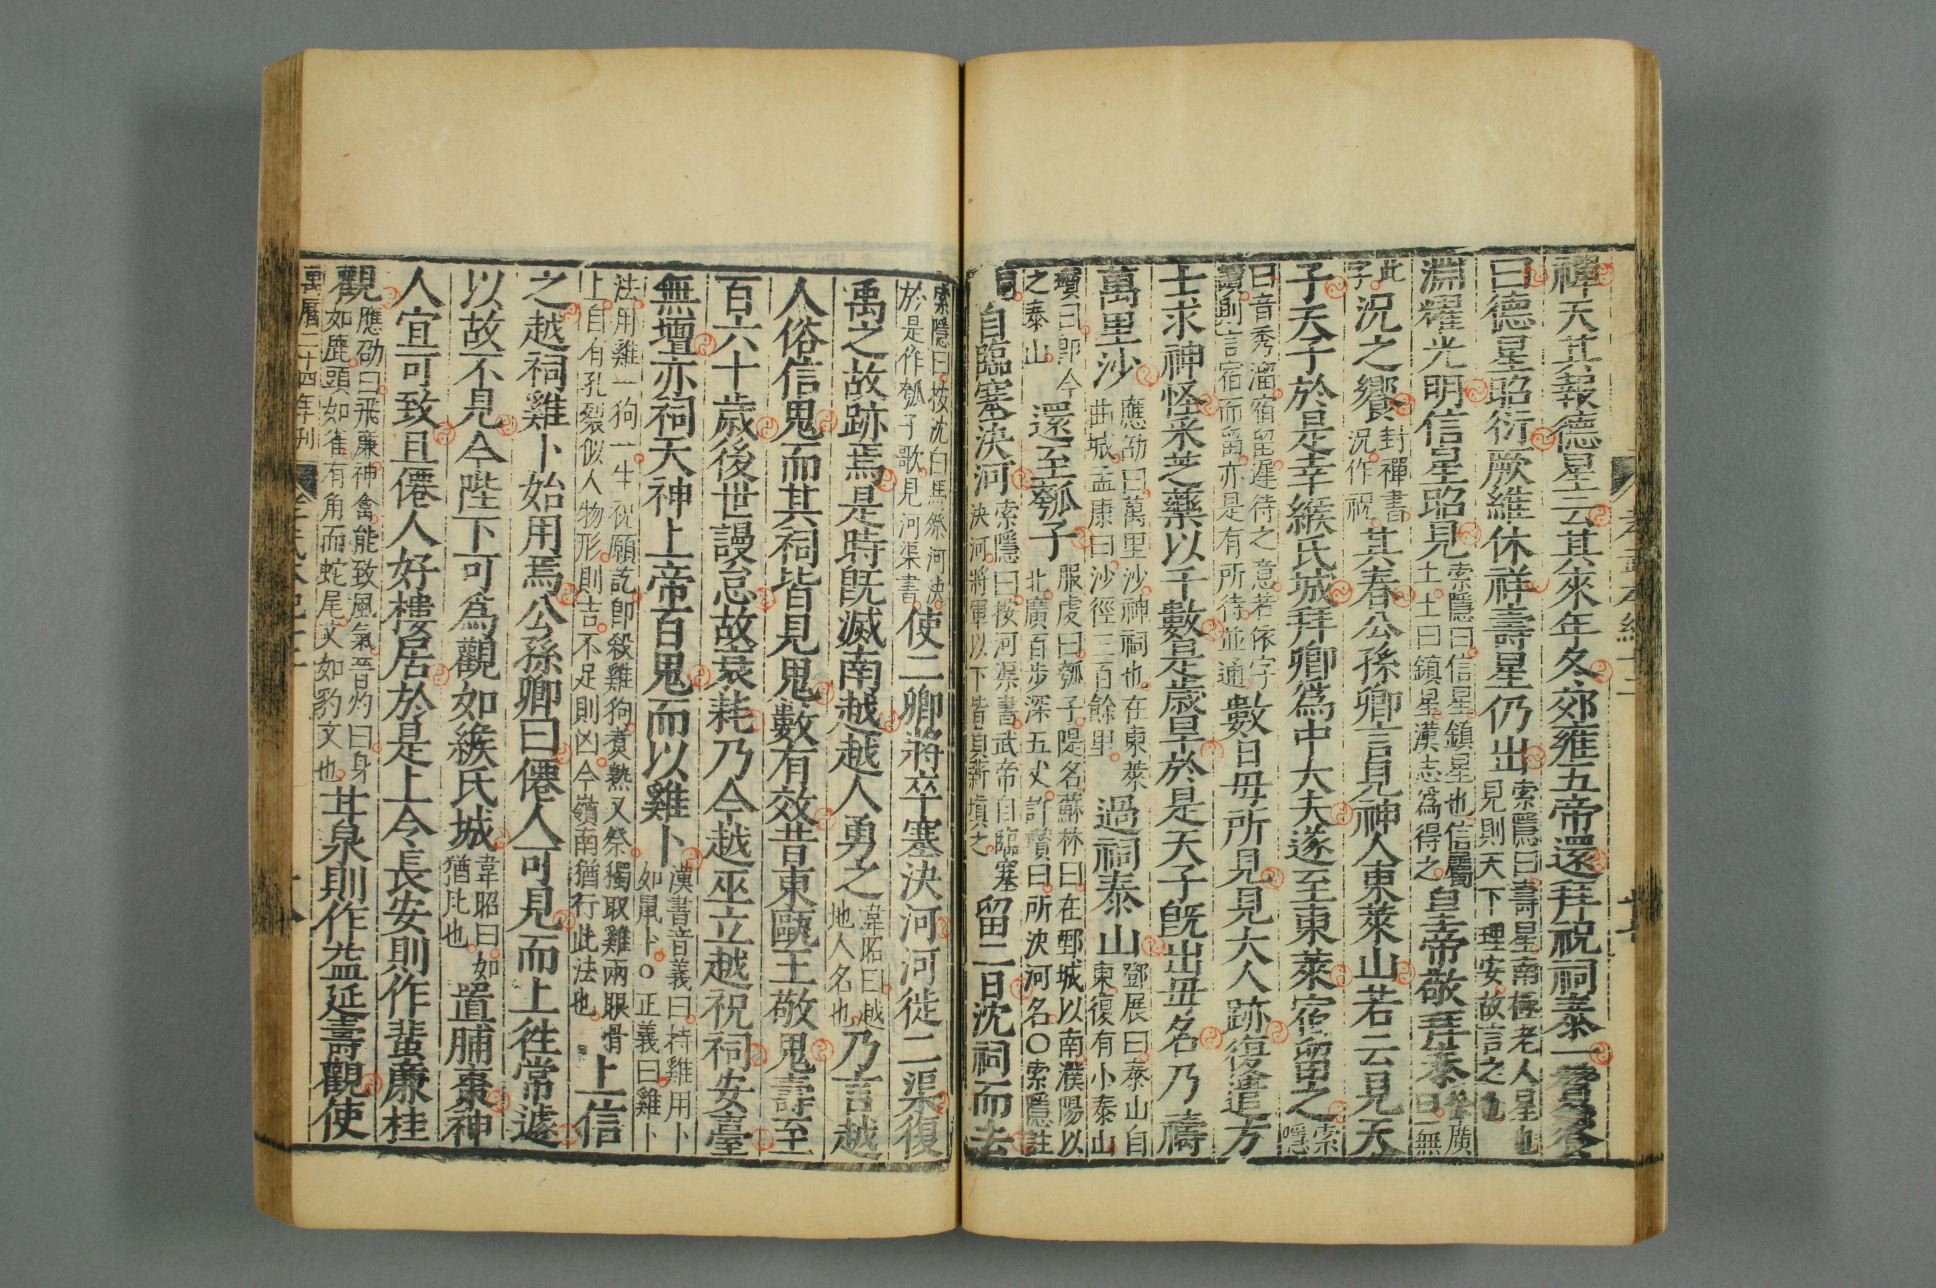 禪天其報德星云其來年冬郊雍五帝還拜祝祠泰一贊饗
曰德星昭衍厥維休祥壽星仍出索隱曰壽星南極老人星也見則天下理安故言之也
淵耀光明信星昭見索隱曰信星鎮星也信屬土土曰鎮星漢志為得之皇帝敬拜泰
此字況之饗封禪書況作祝其春公孫卿言見神人東萊山若云見天
子天子於是幸緱氏城拜卿為中大夫遂至東萊宿留之索隱
曰音秀溜宿留遲待之意若依字讀則言宿而留亦是有所待並通數日毋所見見大人跡復遣方
士求神怪采芝藥以千數是歲旱於是天子旣出毋名乃禱
萬里沙應劭曰萬里沙神祠也在東萊曲城孟康曰沙徑三百餘里過祠泰山鄧展曰泰山自東復有小泰山
瓚曰卽今之泰山還至瓠子服虔曰瓠子隄名蘇林曰在鄄城以南濮陽以北廣百步深五丈許瓚曰所決河名○索隱註
自臨塞決河索隱曰按河渠書武帝自臨塞決河將軍以下皆負薪塡之留二日沈祠而去
索隱曰按沈白馬祭河決於是作瓠子歌見河渠書使二卿將卒塞決河河徙二渠復
禹之故跡焉是時旣滅南越越人勇之韋昭曰越地人名也乃言越
人俗信鬼而其祠皆見鬼數有效昔東甌王敬鬼壽至
百六十歲後世謾怠故衰耗乃令越巫立越祝祠安臺
無壇亦祠天神上帝百鬼而以雞卜漢書音義曰持雞用卜如鼠卜○正義曰雞卜
法用雞一狗一生祝願訖卽殺雞狗煮熟又祭獨取雞兩眼骨上自有孔裂似人物形則吉不足則凶今嶺南猶行此法也上信
之越祠雞卜始用焉公孫卿曰僊人可見而上往常遽
以故不見今陛下可為觀如緱氏城韋昭曰如猶比也置脯棗神
人宜可致且僊人好樓居於是上令長安則作蜚廉桂
觀應劭曰飛廉神禽能致風氣晉灼曰身如鹿頭如雀有角而蛇尾文如豹文也甘泉則作益延壽觀使
萬曆二十四年刊